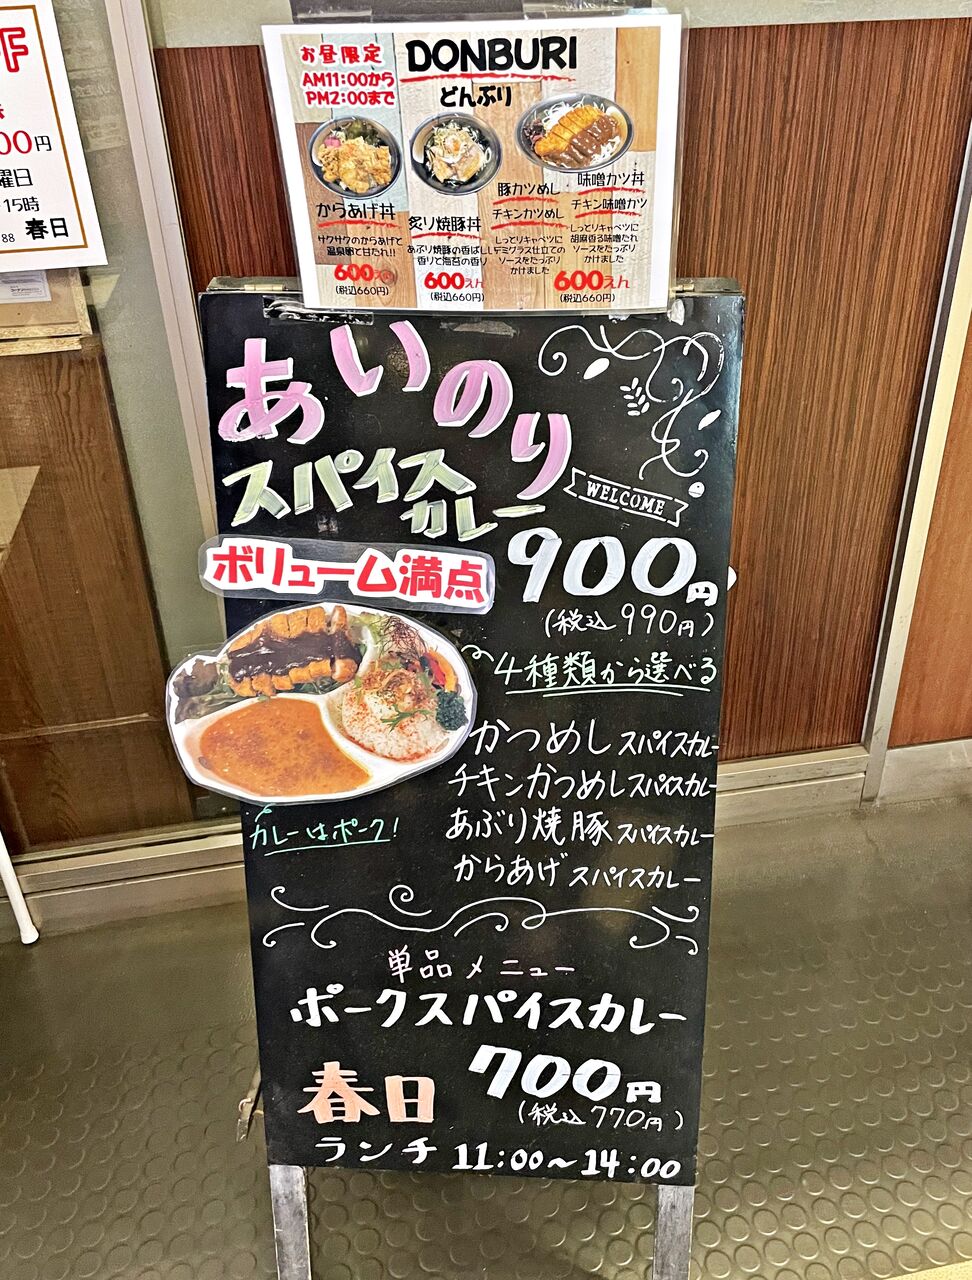 F
00円
曜日
15時
88 春日
お昼限定
AM11:00から
PM2:00まで
DONBURI
どんぶり
からあげ丼
サクサクのからあげと
温泉卵で甘たれ!!
600えん
(税込660円)
炙り焼豚丼
あぶり焼豚の香ばし
香りと海苔の香り
600えん
(税込660円)
豚カツめし
チキンカツめし
しっとりキャベツに
デミグラス仕立ての
ソースをたっぷり
かけました
味噌カツ丼
チキン味噌カツ
しっとりキャベツに
胡麻香る味噌たれ
ソースをたっぷり
かけました
600えん
(税込660円)
あいのり
スパイス
カレー
WELCOME
ボリューム満点
900円
(税込990円)
4種類から選べる
かつめしスパイスカレー
チキンかつめしスパイスカレー
あぶり焼豚スパイスカレー
からあげスパイスカレー
カレーはポーク!
単品メニュー
ポークスパイスカレー
700円
(税込770円)
春日
ランチ 11:00～14:00